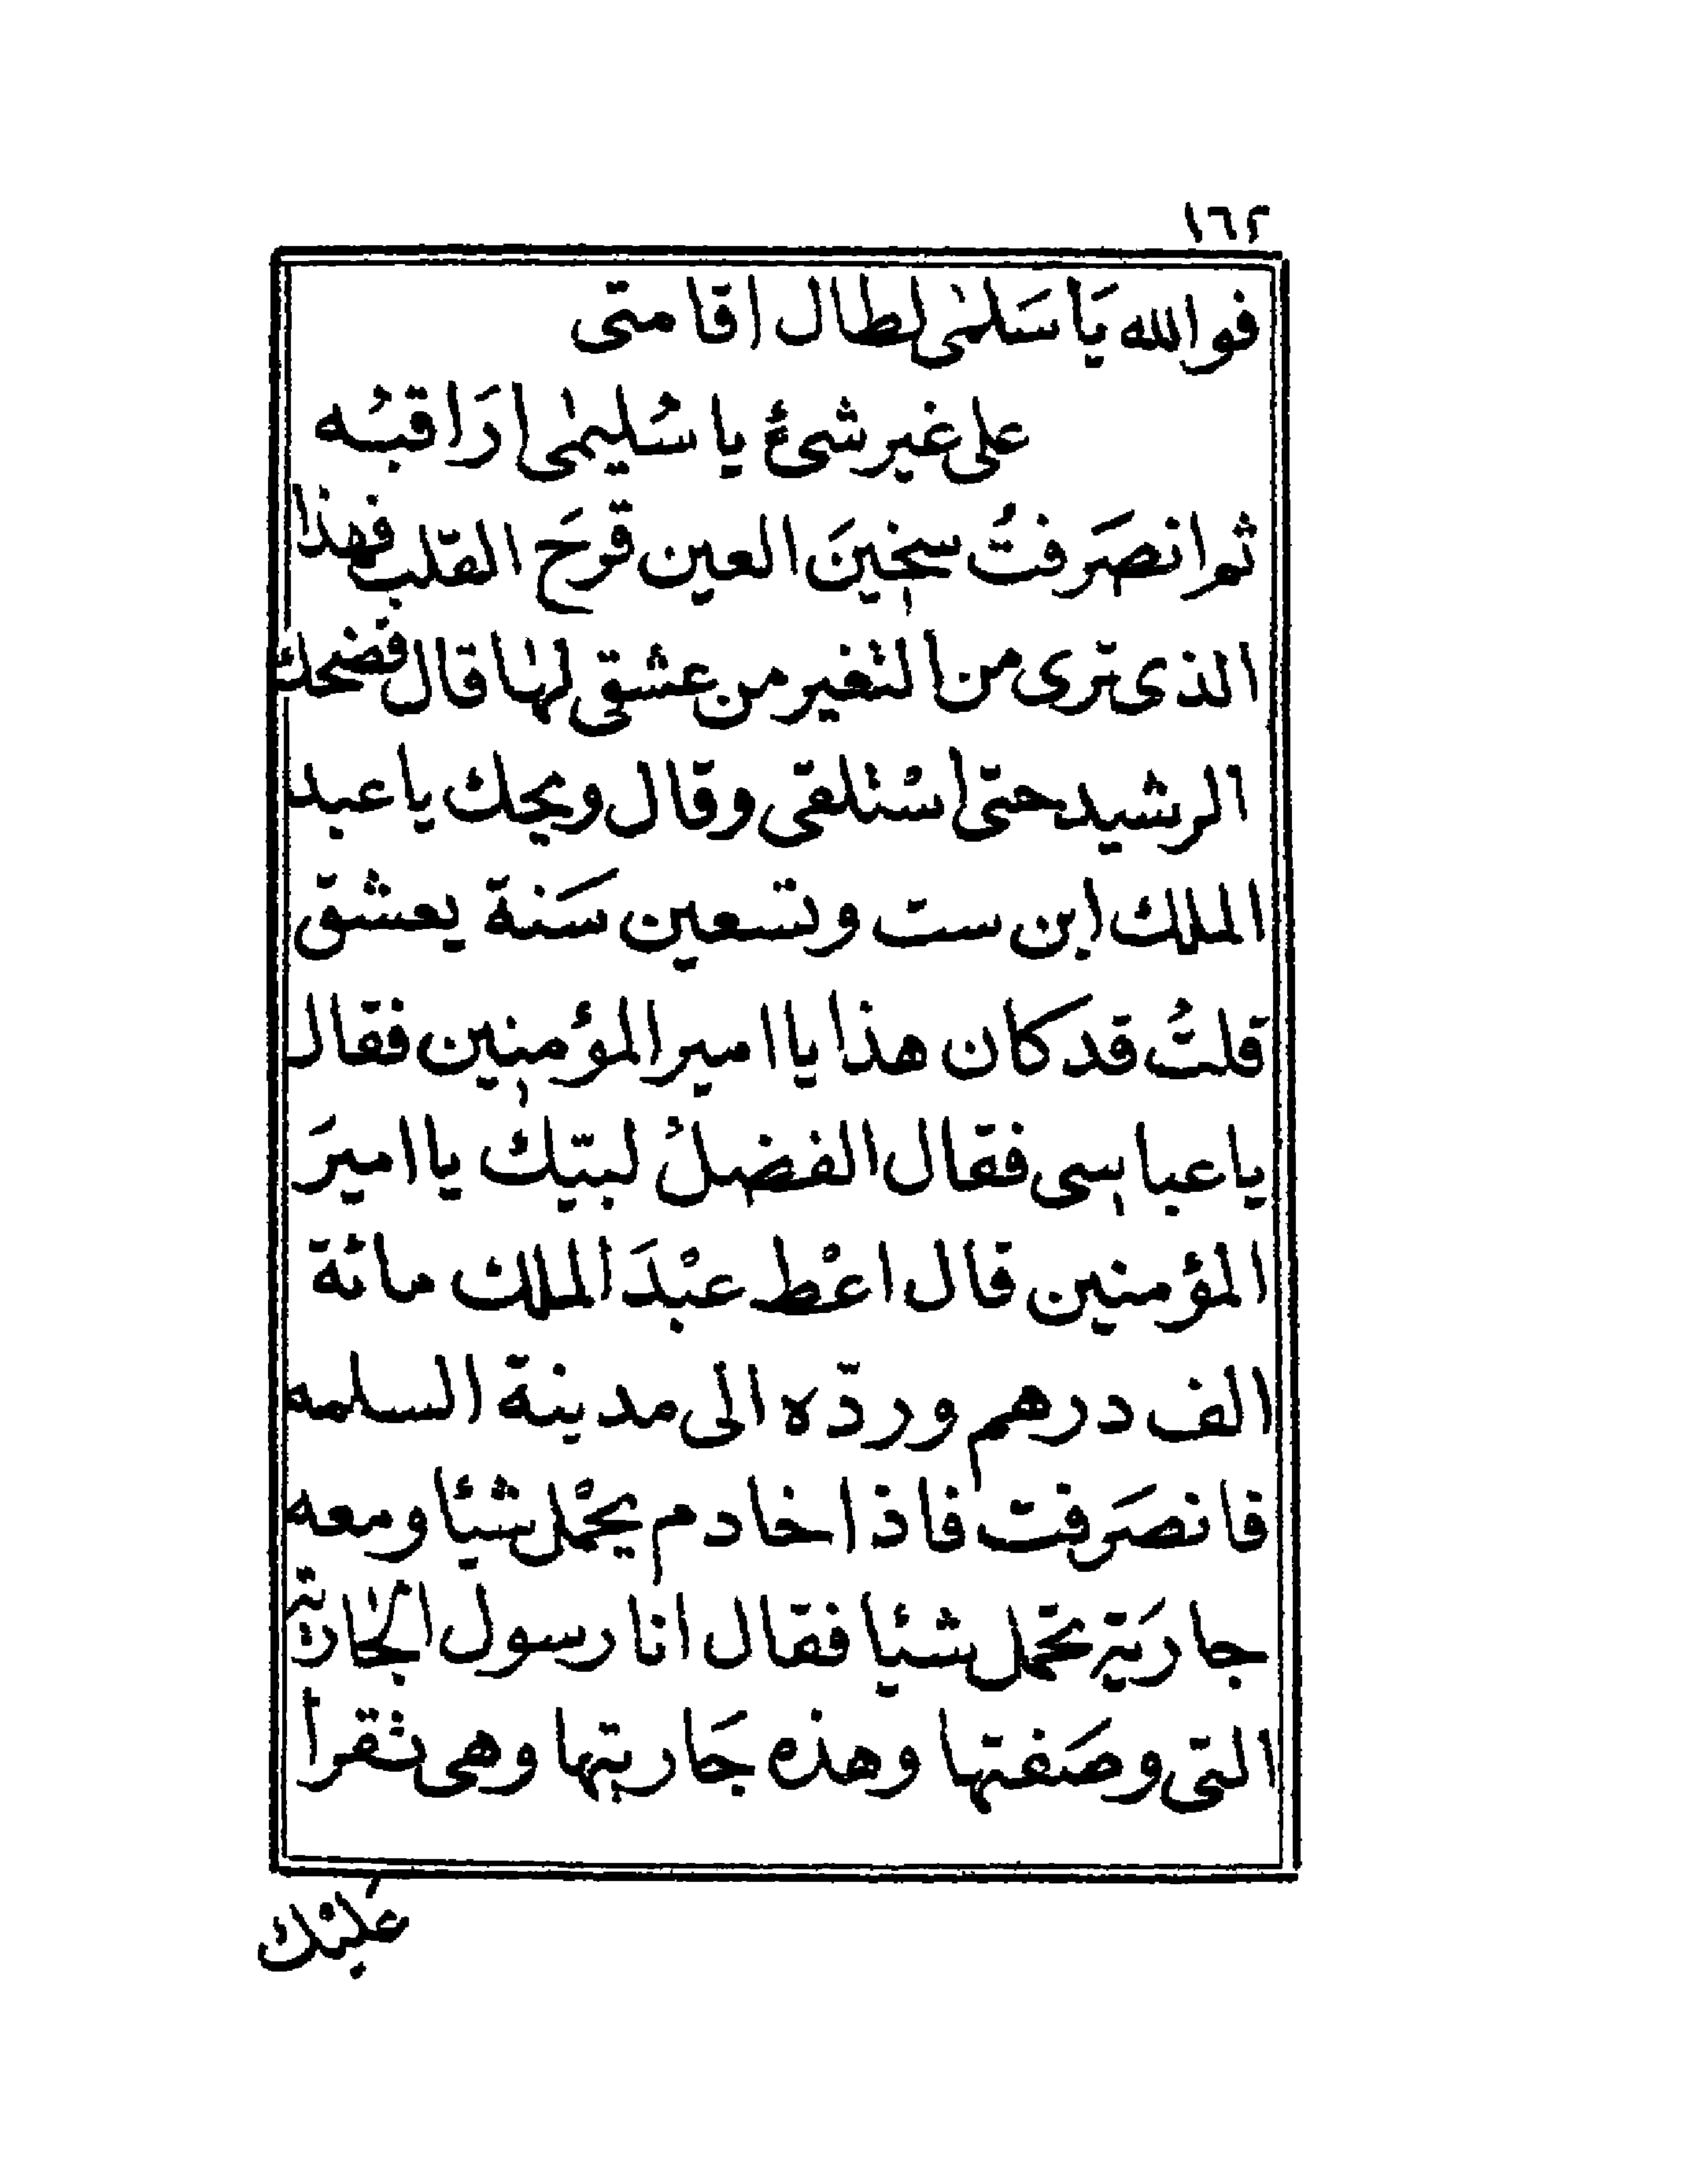 ١٦٢
فوالله يَا سَلمٰى لطال اقامتى
على غير شىءٔ يا سُليمٰى ارَاقبُه
ثم انصَرفتُ سخينَ العين قرحَ القلب فهذا
الذى ترى من التغير من عشقى لهٰا قال فضحك
الرشيد حتى اسْتلقى وقال ويحك يا عبد
الملك ابن ست وتسعين سَنة يعشق
قلتُ قد كان هذا يا امير المؤمنين فقال
يا عباسى فقال الفضلُ لبيّك يا اميرَ
المؤمنين قال اعْط عبْدَ الملك مائة
الف درهم وردّه الى مدينة السلمه
فانصَرفت فاذا خادم يحْمل شيئا ومعه
جاريَة تحمل شيئا فقال انا رسول الجٰارية
التى وصَفتها وهذه جَاريتها وهى تقرأ
عليْك